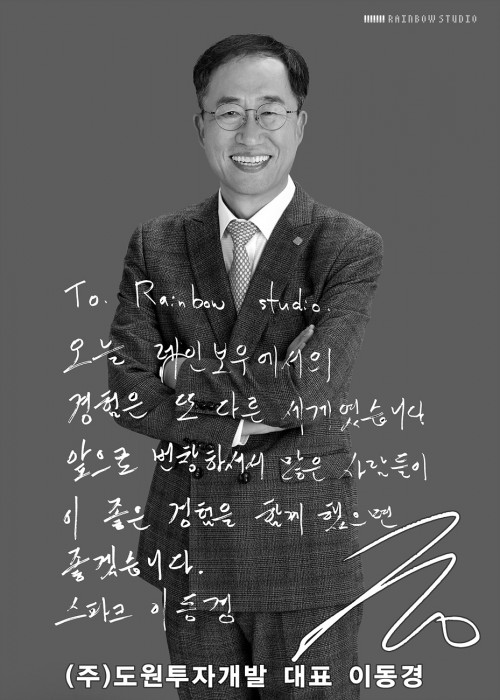 RAINBOW STUDIO
To. Rainbow studio.
오늘 레인보우에서의
경험은 또 다른 세계였습니다
앞으로 번창하셔서 많은 사람들이
이 좋은 경험을 함께 했으면
좋겠습니다.
스파크 이동경
(주)도원투자개발 대표 이동경